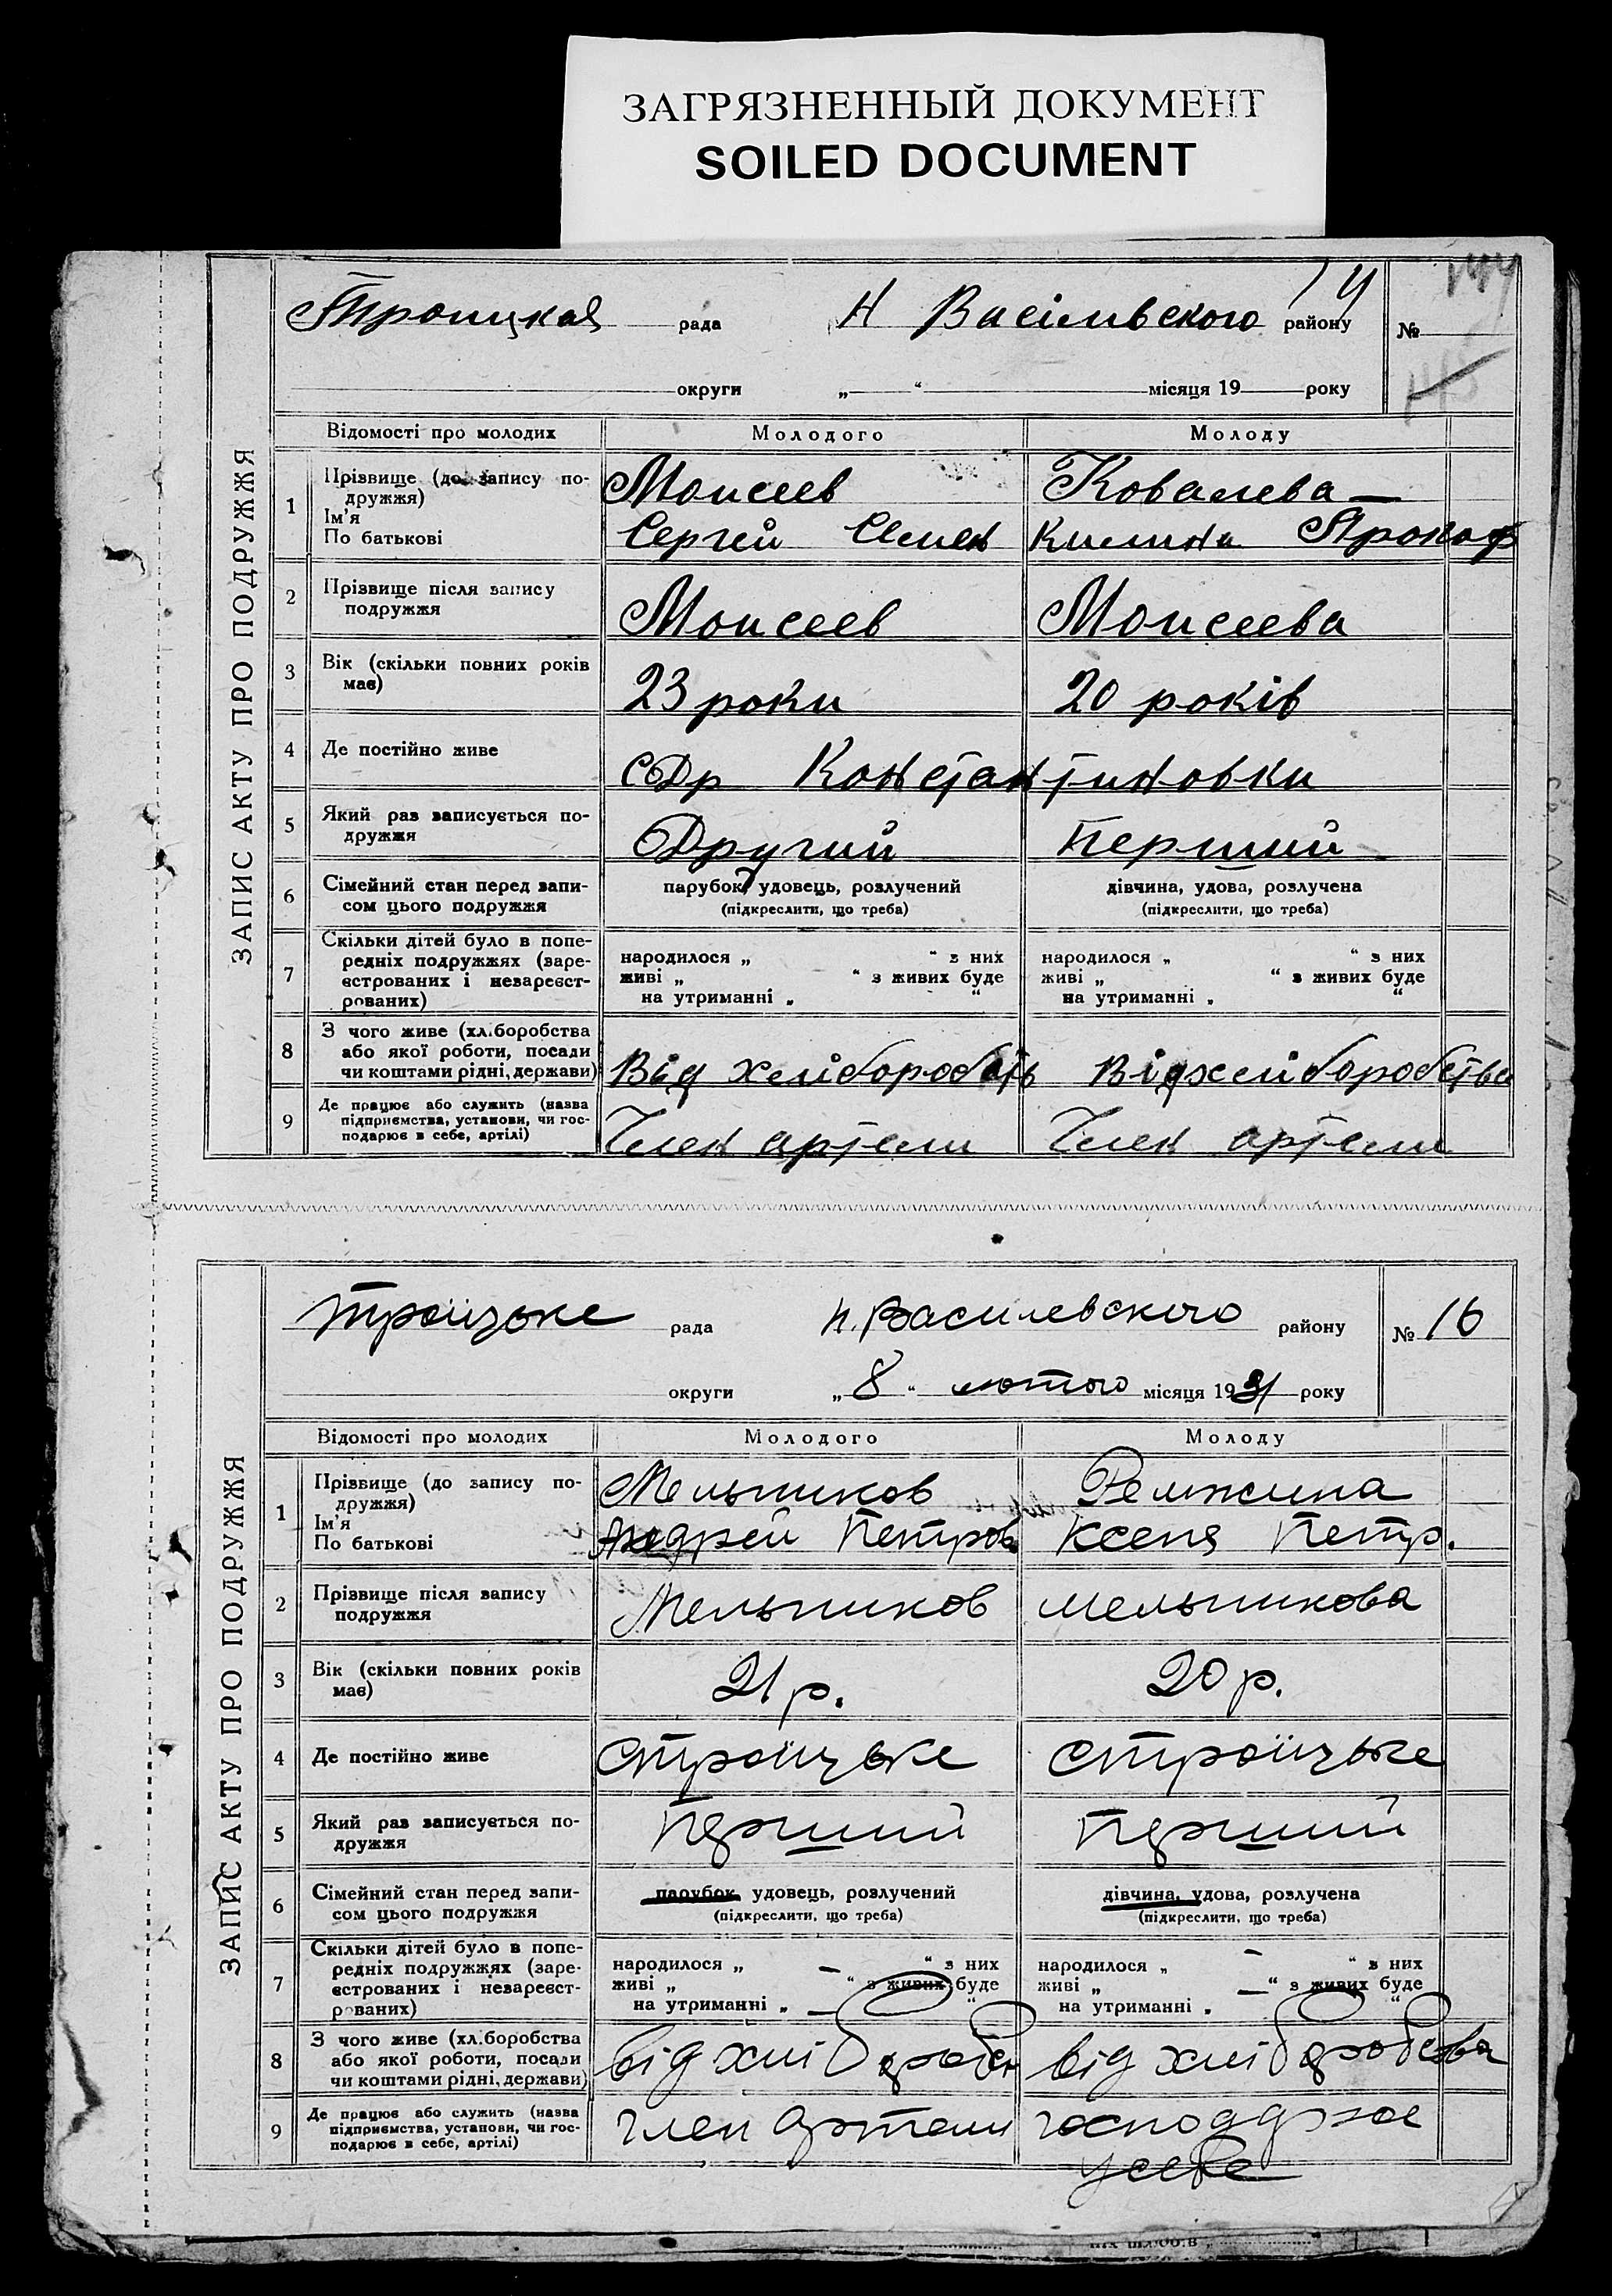 ЗАГРЯЗНЕННЫЙ ДОКУМЕНТ
SOILED DOCUMENT
ЗАПИС АКТУ ПРО ПОДРУЖЖЯ
Троицкая рада Н Васіливского району №
14
144
округи „ “ місяця 19 року
Відомості про молодих Молодого Молоду
1 Прізвище (до запису по- Моисеев Ковалева
дружжя)
Ім'я Сергей Семен Килина Прокоф
По батькові
2 Прізвище після запису Моисеев Моисеева
подружжя
3 Вік (скільки повних років 23 роки 20 років
має)
4 Де постійно живе с Др Констан тиновки
5 Який раз записується по- Другий Перший
дружжя
6 Сімейний стан перед запи- парубок, удовець, розлучений дівчина, удова, розлучена
сом цього подружжя (підкреслити, що треба) (підкреслити, що треба)
7 Скільки дітей було в попе- народилося „ “ з них народилося „ “ з них
редніх подружжях (заре- живі „ “ з живих буде живі „ “ з живих буде
єстрованих і незареєст- на утриманні „ “ на утриманні „ “
рованих)
8 З чого живе (хліборобства
або якої роботи, посади Від хліборобств Від хліборобства
чи коштами рідні, держави)
9 Де працює або служить (назва
підприємства, установи, чи гос- Член артели Член артели
подарює в себе, артілі)
ЗАПИС АКТУ ПРО ПОДРУЖЖЯ
Троїцьке рада Н. Василевского району № 16
округи „ 8 “ лютого місяця 1931 року
Відомості про молодих Молодого Молоду
1 Прізвище (до запису по- Мельников
дружжя)
Ім'я Андрей Петров Ксеня Петр.
По батькові
2 Прізвище після запису Мельников Мельникова
подружжя
3 Вік (скільки повних років 21 р. 20 р.
має)
4 Де постійно живе с Троїцьке с Троїцьке
5 Який раз записується по- Перший Перший
дружжя
6 Сімейний стан перед запи- парубок, удовець, розлучений дівчина, удова, розлучена
сом цього подружжя (підкреслити, що треба) (підкреслити, що треба)
7 Скільки дітей було в попе- народилося „ — “ з них народилося „ — “ з них
редніх подружжях (заре- живі „ “ з живих буде живі „ — “ з живих буде
єстрованих і незареєст- на утриманні „ — “ на утриманні „ “
рованих)
8 З чого живе (хліборобства
або якої роботи, посади від хліборобств від хліборобства
чи коштами рідні, держави)
9 Де працює або служить (назва
підприємства, установи, чи гос- член Артели
подарює в себе, артілі) у себе